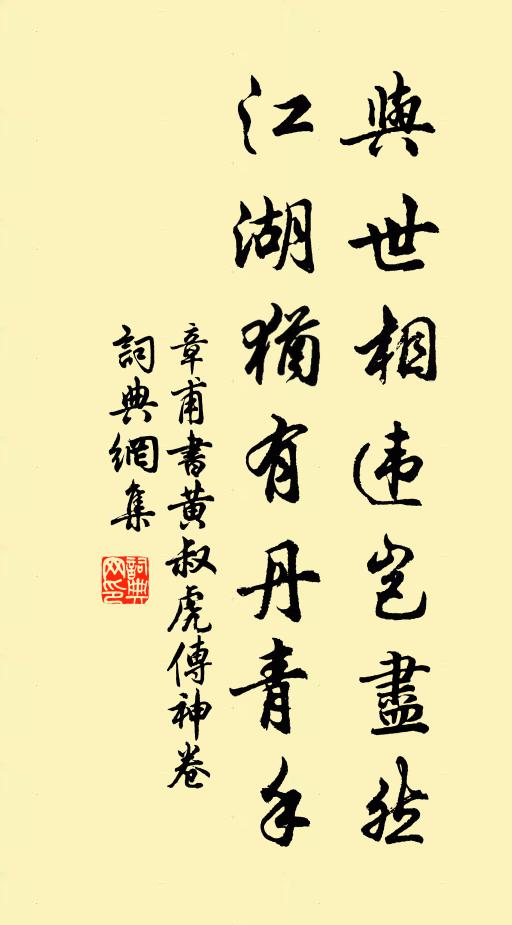 與世相違豈盡然
江湖猶有丹青手
章甫書黄叔虎傳神卷
詞典網集
詞典
网印